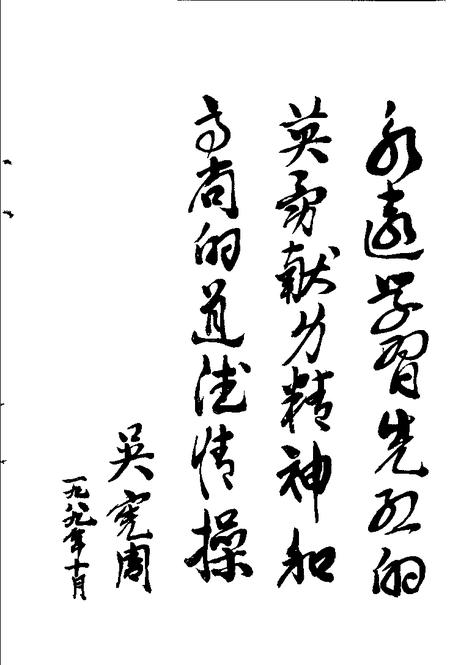 永遠学習先烈的
英勇献身精神和
高尚的道德情操
吴宪周
一九八九年十月